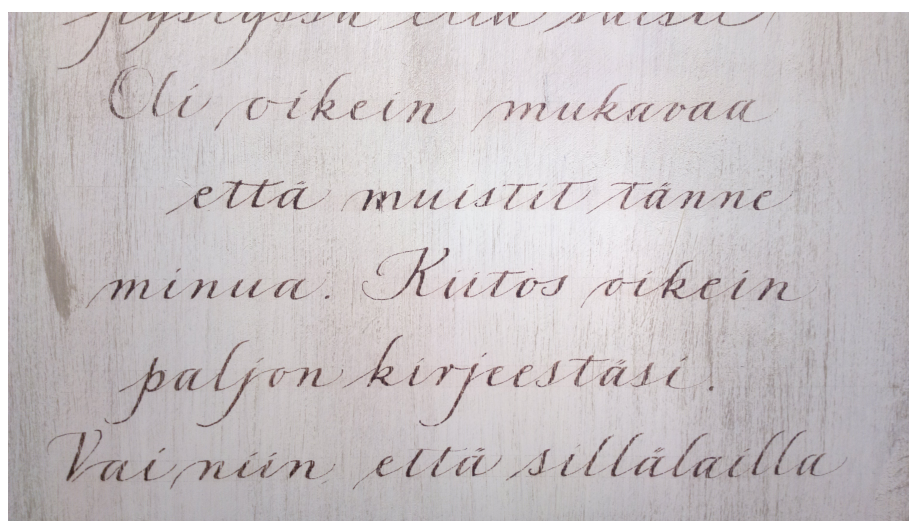 Oli oikein mukavaa
että muistit tänne
minua. Kiitos oikein
paljon kirjeestäsi.
Vai niin että sillälailla